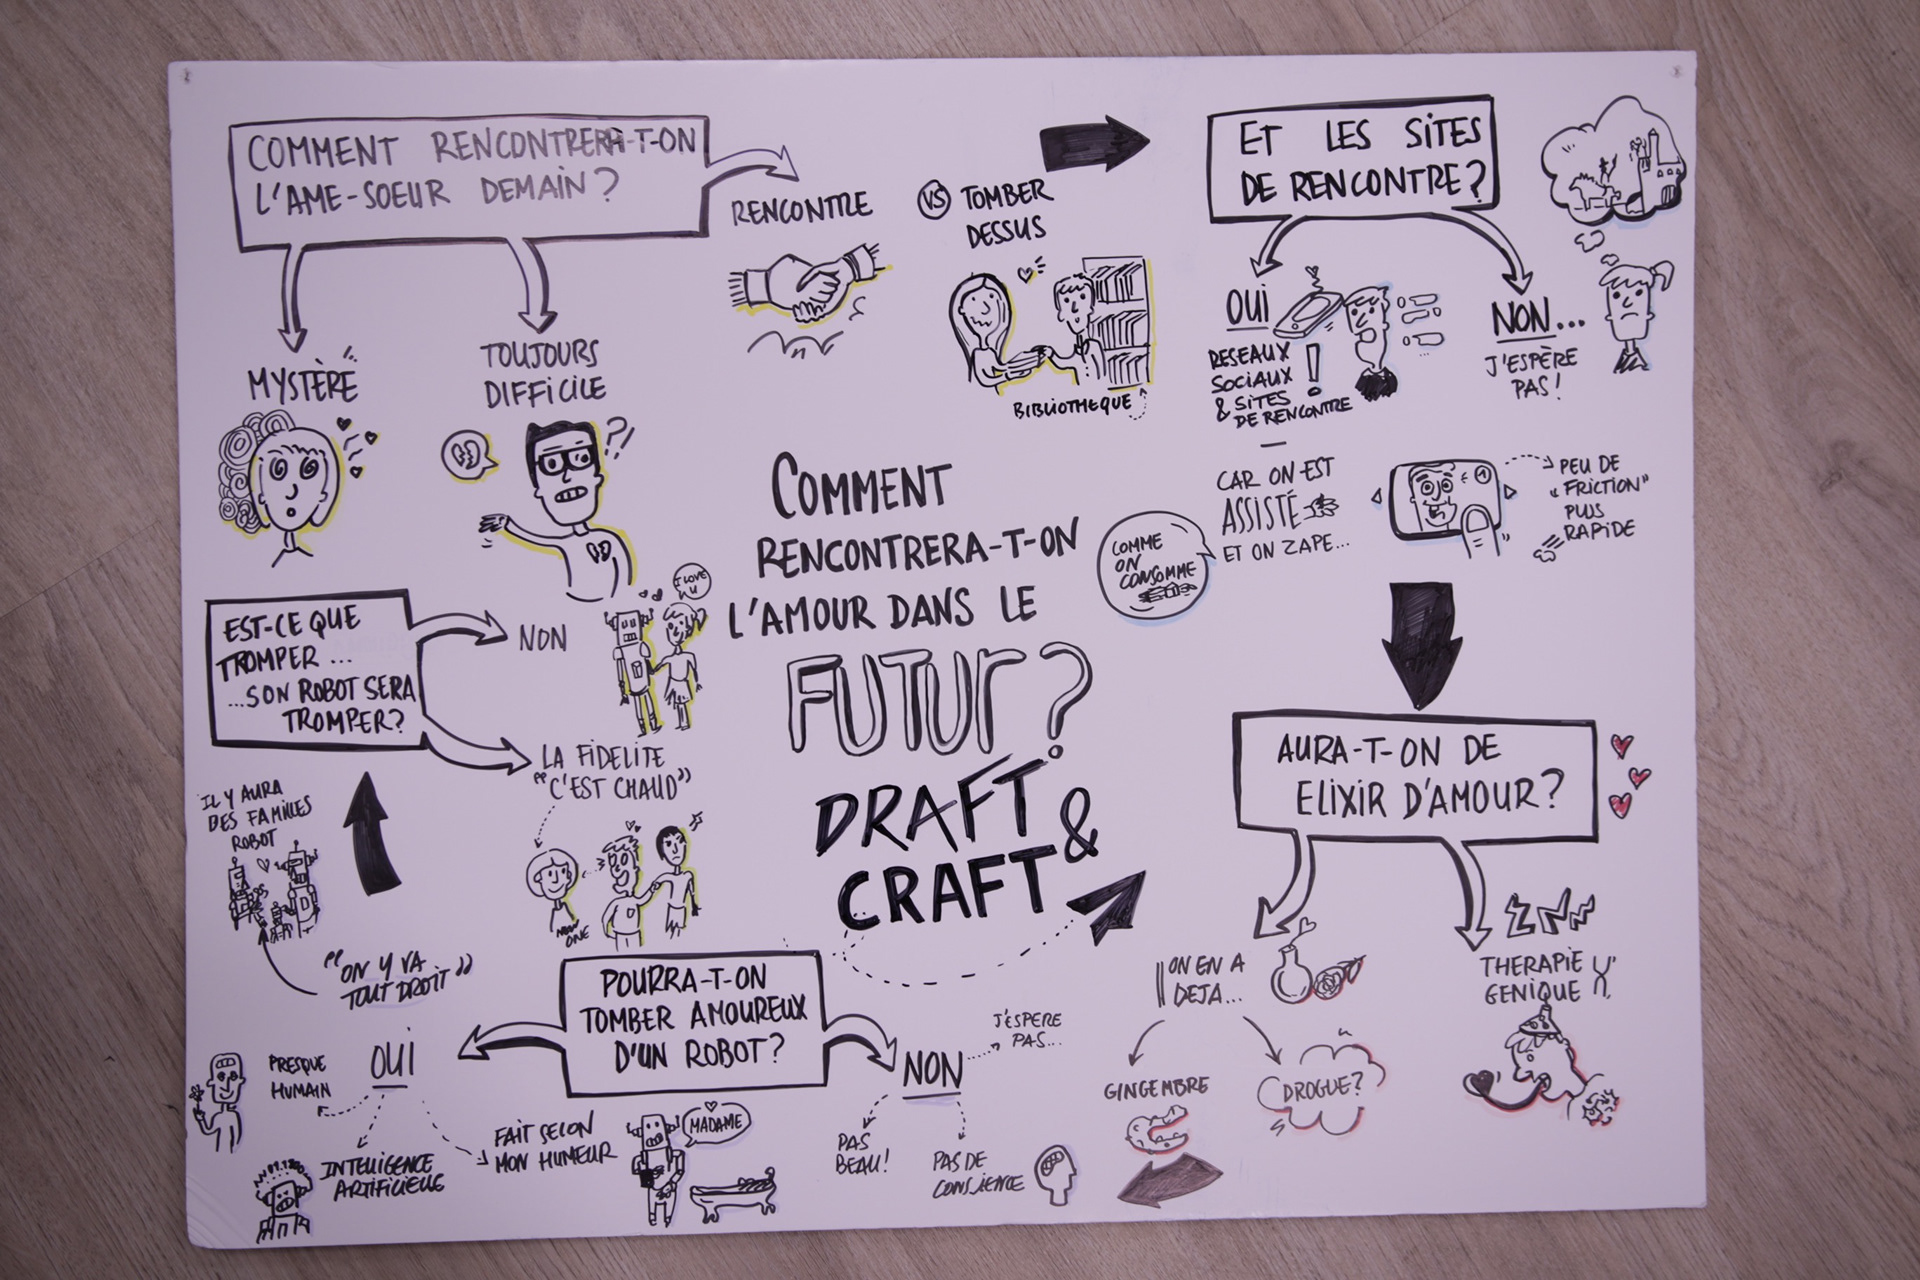 COMMENT RENCONTRERA-T-ON
L'AME-SOEUR DEMAIN?
MYSTÈRE
TOUJOURS
DIFFICILE
?!
RENCONTRE
VS TOMBER
DESSUS
BIBLIOTHEQUE
ET LES SITES
DE RENCONTRE?
OUI
RESEAUX
SOCIAUX
& SITES
DE RENCONTRE
!
NON...
J'ESPÈRE
PAS!
CAR ON EST
ASSISTÉ
ET ON ZAPE...
COMME
ON
CONSOMME
PEU DE
"FRICTION"
PLUS
RAPIDE
COMMENT
RENCONTRERA-T-ON
L'AMOUR DANS LE
FUTUR?
DRAFT
&
CRAFT
AURA-T-ON DE
ELIXIR D'AMOUR?
ON EN A
DEJA...
GINGEMBRE
DROGUE?
THERAPIE
GENIQUE
POURRA-T-ON
TOMBER AMOUREUX
D'UN ROBOT?
NON
J'ESPERE
PAS...
PAS
BEAU!
PAS DE
CONSCIENCE
OUI
PRESQUE
HUMAIN
INTELLIGENCE
ARTIFICIELLE
FAIT SELON
MON HUMEUR
MADAME
"ON Y VA
TOUT DROIT"
IL Y AURA
DES FAMILLES
ROBOT
EST-CE QUE
TROMPER...
...SON ROBOT SERA
TROMPER?
NON
I LOVE
U
LA FIDELITE
"C'EST CHAUD"
ONE